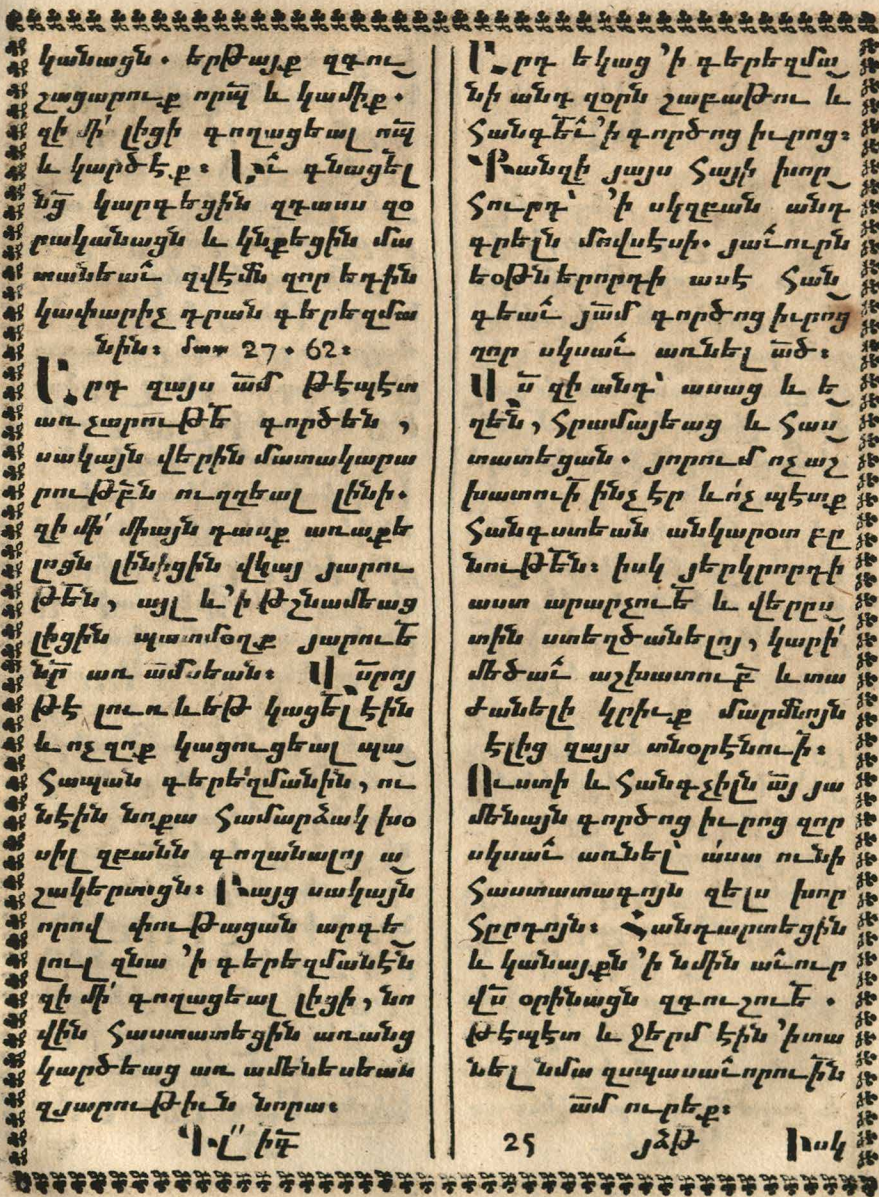 կանացն. երթայք զգու֊
շացարուք որպ̃ և կամիք.
զի մի՛ լիցի գողացեալ ոպ̃
և կարծէք: Եւ̃ գնացել
նց̃ կարգեցին զդասս զօ
րականացն և կնքեցին մա
տանեաւ̃ զվէմն զոր եդին
կափարիչ դրան գերեզմա
նին: մատ 27. 62:
Արդ զայս ա̃մ թէպէտ
առ չարութե̃ գործեն,
սակայն վերին մատակարա
րութբ̃ն ուղղեալ լինի.
զի մի՛ միայն դասք առաքե
լոցն լինիցին վկայ յարու
թեն̃, այլ և ՚ի թշնամեաց
լիցին պատմօղք յարուե̃
նր̃ առ ամ̃սեան: Ա սրոյ
թէ լուռ ևեթ կացել էին
և ոչ զոք կացուցեալ պա֊
հապան գերեզմանին, ու
նէին նոքա համարձակ խօ
սիլ զբանն գողանալոյ ա֊
շակերտացն: Բայց սակայն
որով փութացան արգե֊
լուլ զնա ՚ի գերեզմանէն
զի մի՛ գողացեալ լիցի, նո
վին հաստատեցին առանց
կարծեաց առ ամենեսեան
զյարութիւն նորա:
Արդ եկաց ՚ի գերեզմա֊
նի անդ զօրն շաբաթու և
հանգեւ̃ ՚ի գործոց իւրոց:
Քանզի յայս հայի խոր֊
հուրդ՝ ՚ի սկզբան անդ
գրելն մովսէսի. յաւ̃ուրն
եօթներորդի ասէ հան֊
գեաւ̃ յա̃մ գործոց իւրոց
զոր սկսաւ̃ առնել ած̃:
Ա ս̃ զի անդ՝ ասաց և ե֊
ղեն̃, հրամայեաց և հաս֊
տատեցան. յորում ոչ աշ֊
խատուի̃ ինչ էր և ոչ պէտք
հանգստեան անկարօտ բը
նութեն̃: իսկ յերկրորդի
աստ արարչուե̃ և վերըս֊
տին ստեղծանելոյ, կարի՛
մեծաւ̃ աշխատուբ̃ և տա
ժանելի կրիւք մարմնոյն
ելից զայս տնօրէնուի̃:
Ուստի և հանգչիլն այ̃ յա
մենայն գործոց իւրոց զոր
սկսաւ̃ առնել՝ աստ ունի
հաստատագոյն զելս խոր
հըրդոյն: Հանդարտեցին
և կանայքն ՚ի նմին աւ̃ուր
վս̃ օրինացն զգուշուե̃.
թէպէտ և ջերմ էին ՚ի տա
նել նմա զսպասաւ̃որուի̃ն
ա̃մ ուրեք:
25 յձթ Իսկ